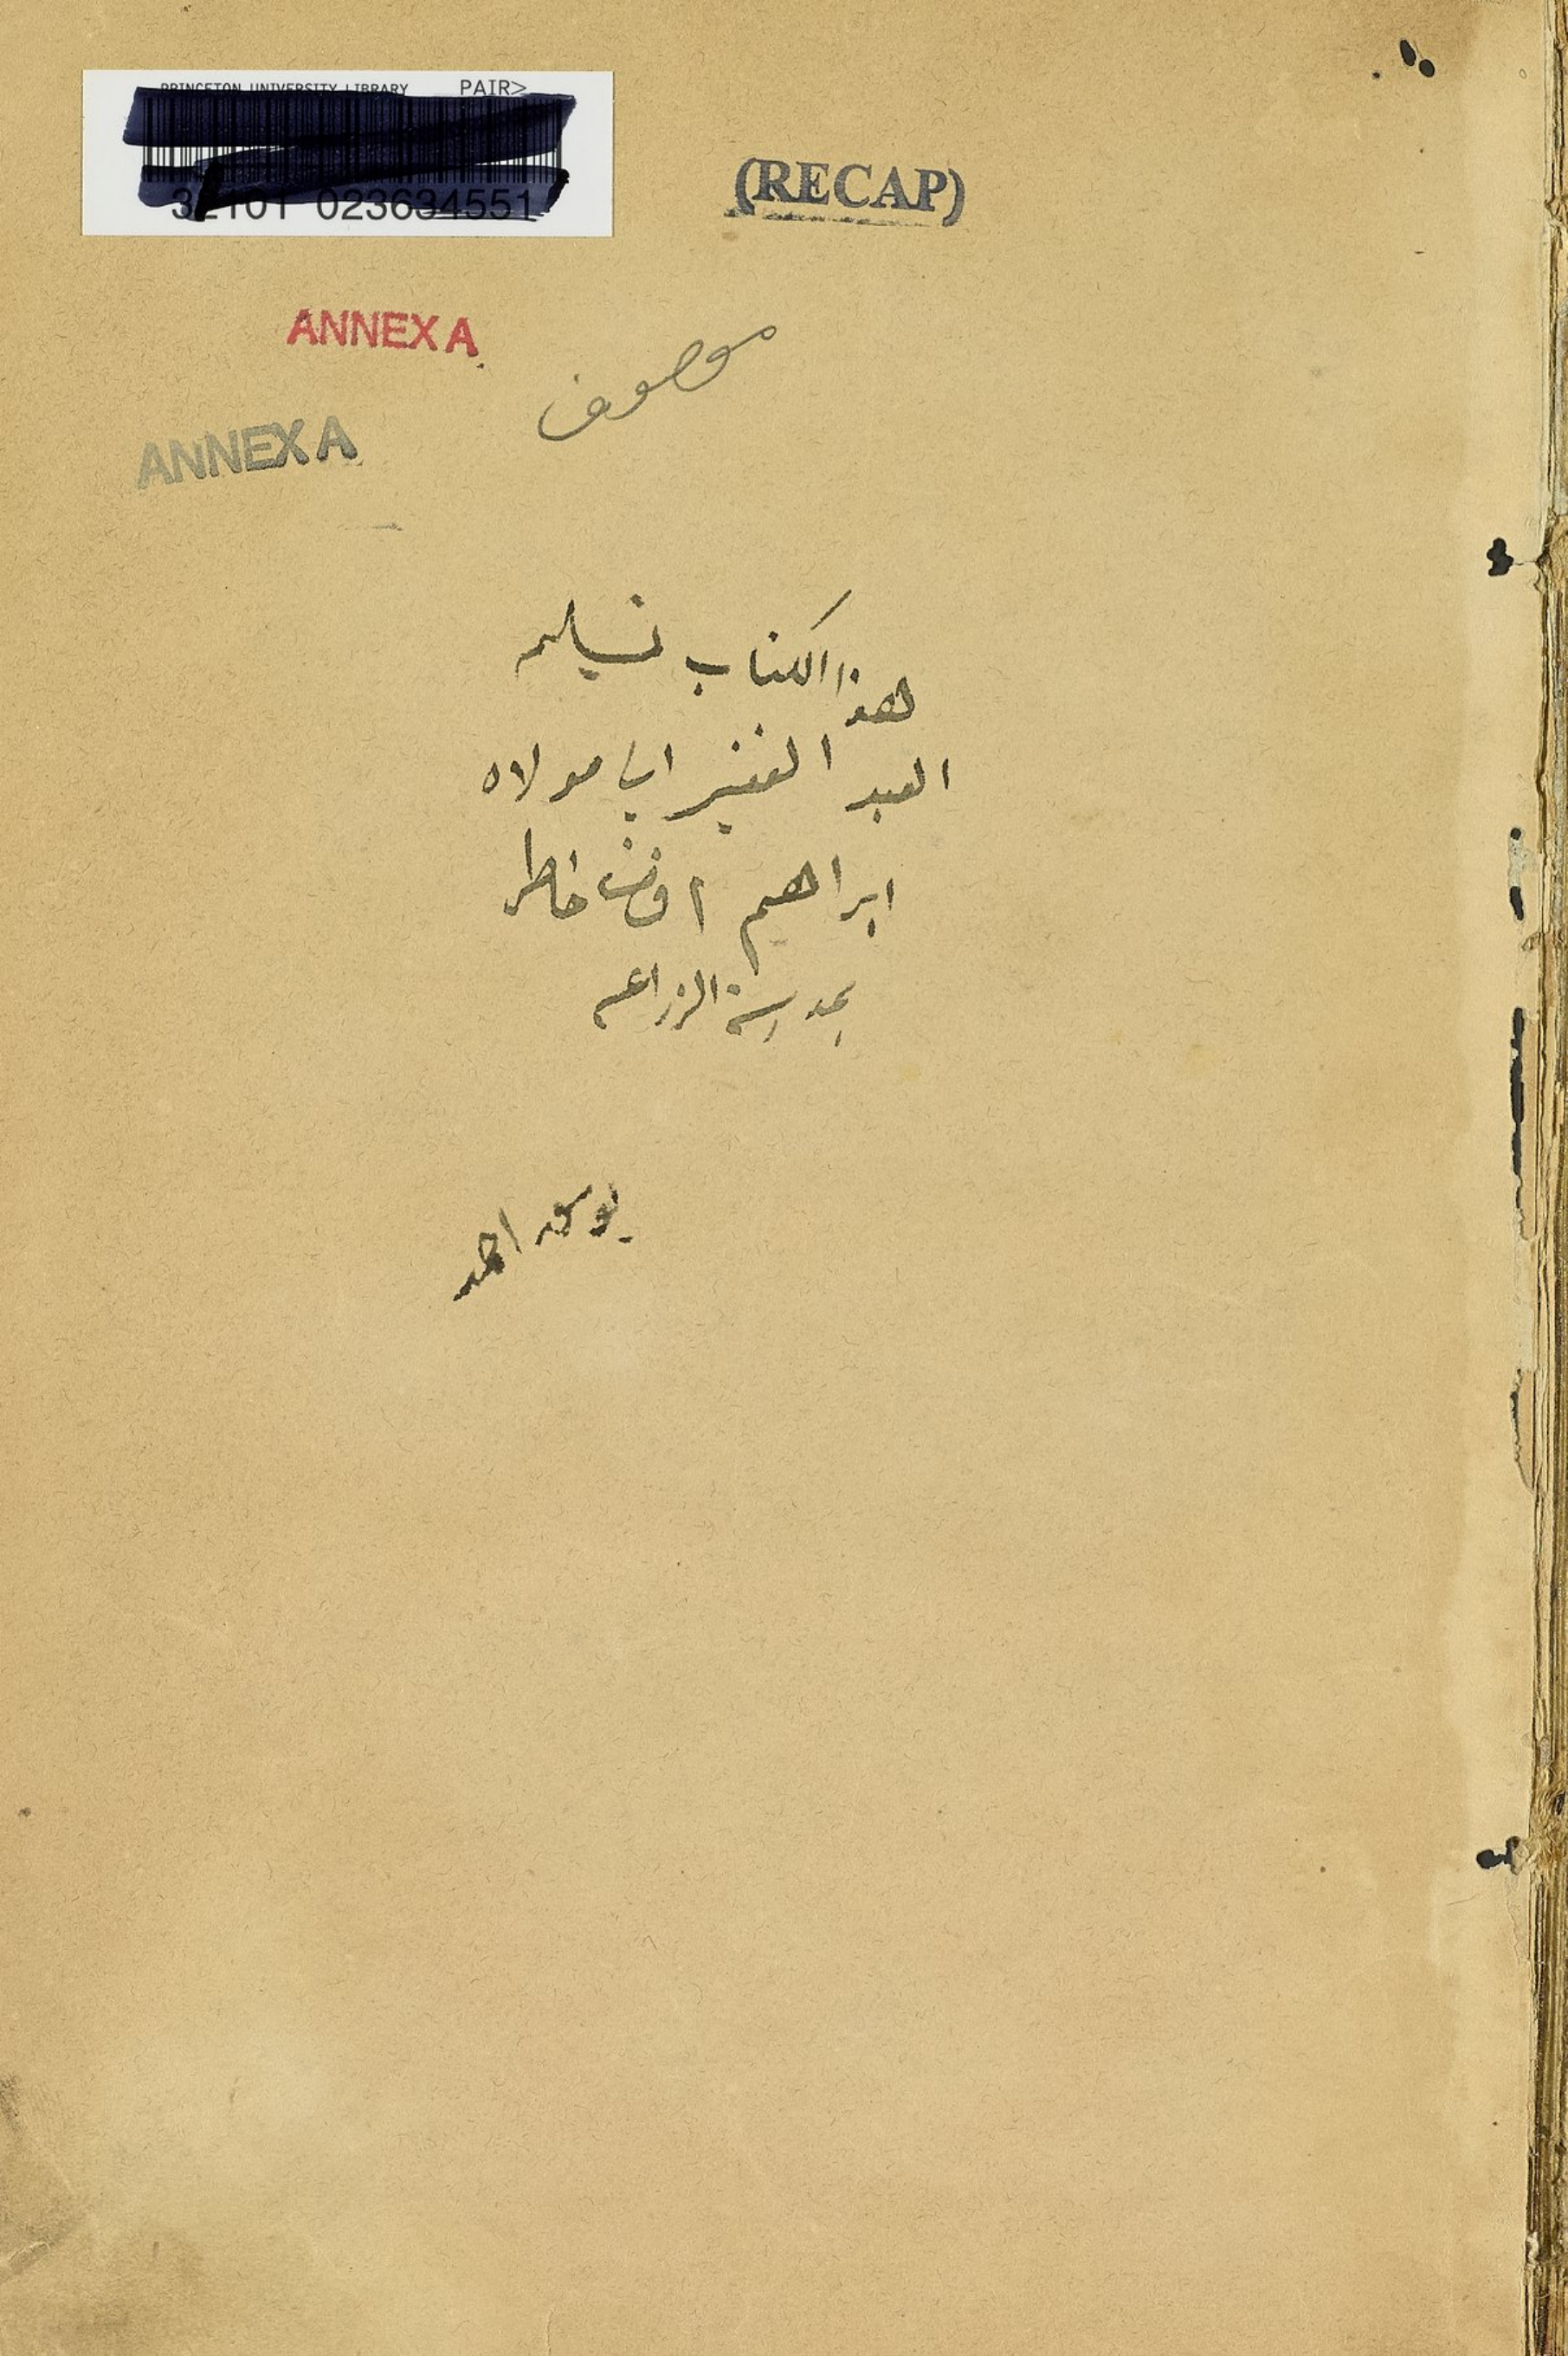 PRINCETON UNIVERSITY LIBRARY PAIR>
32101 023634551
(RECAP)
ANNEX A
ANNEX A
موصوف
هذا الكتاب تسليم
العبد الفقير الى مولاه
ابراهيم افندى خاطر
بمدرسة الزراعه
يوسف احمد